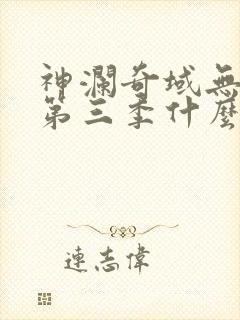 神瀾奇域無
第三季什麼
連志偉